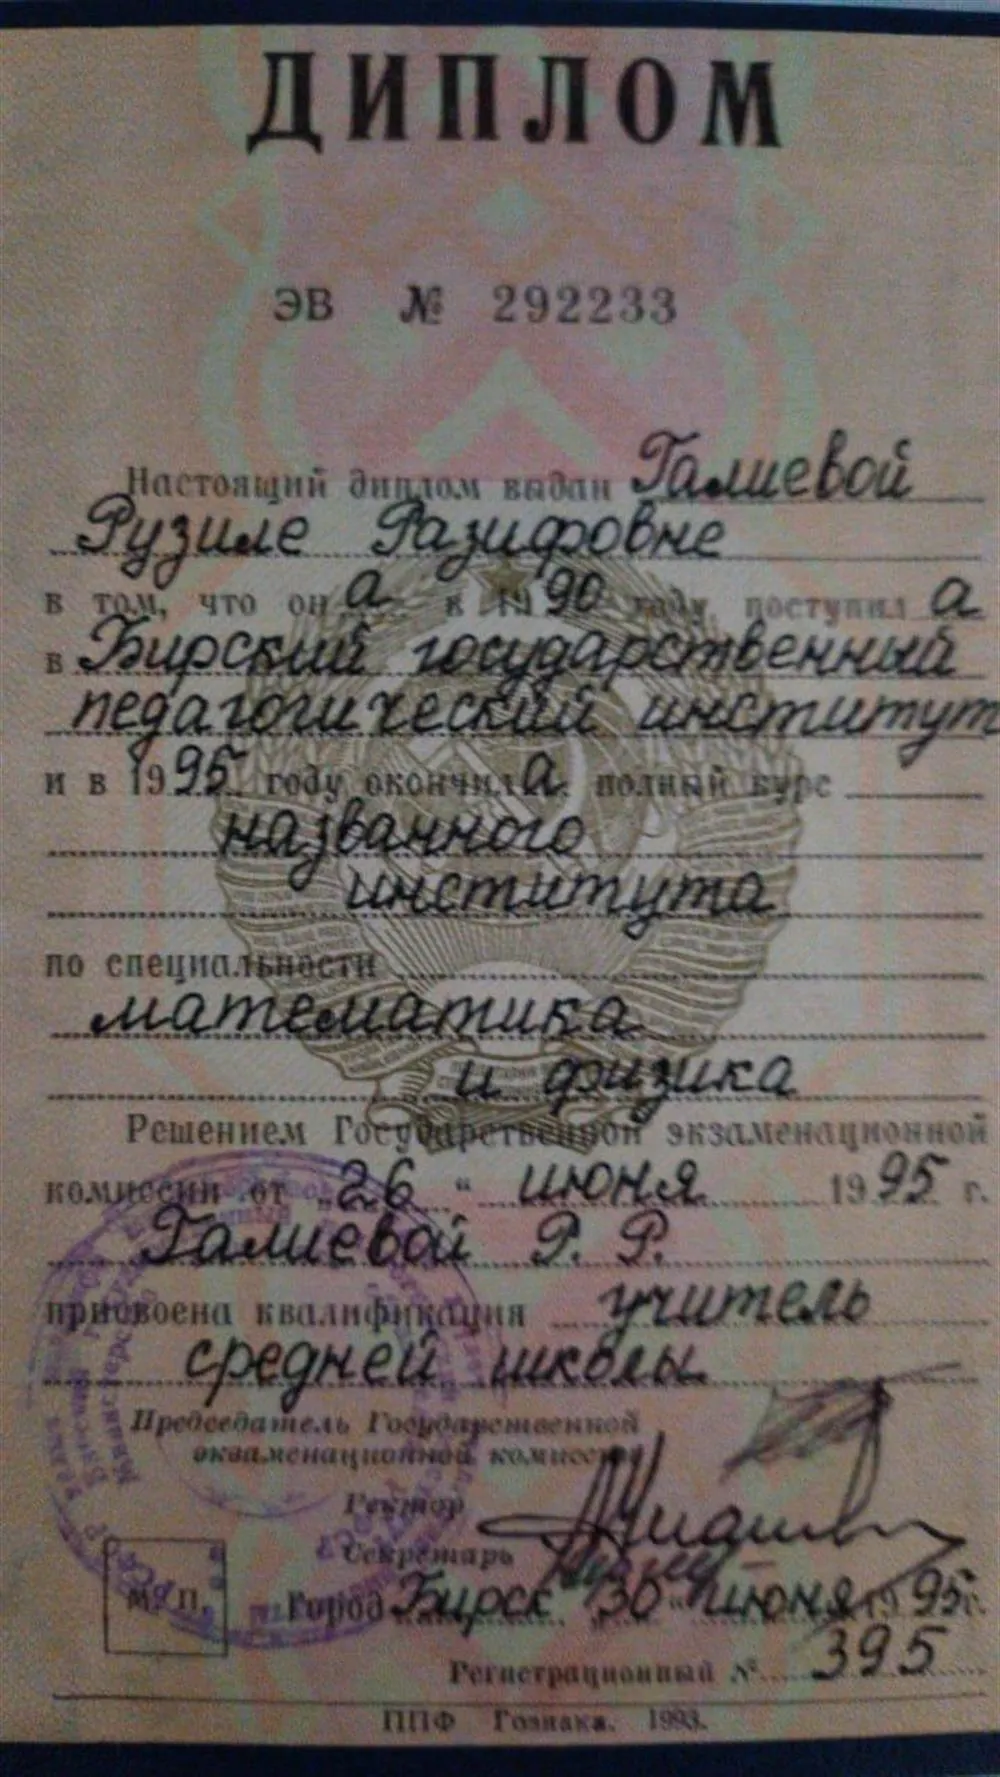 ДИПЛОМ
ЭВ № 292233
Настоящий диплом выдан Галиевой
Рузиле Разифовне
в том, что она в 1990 году поступила
в Бирский государственный
педагогический институт
и в 1995 году окончила полный курс
названного
института
по специальности
математика
и физика
Решением Государственной экзаменационной
комиссии от „26“ июня 1995 г.
Галиевой Р. Р.
присвоена квалификация учитель
средней школы
Председатель Государственной
экзаменационной комиссии
Ректор
Секретарь
М. П. Город Бирск „30“ июня 1995г.
Регистрационный № 395
ППФ Гознака. 1993.